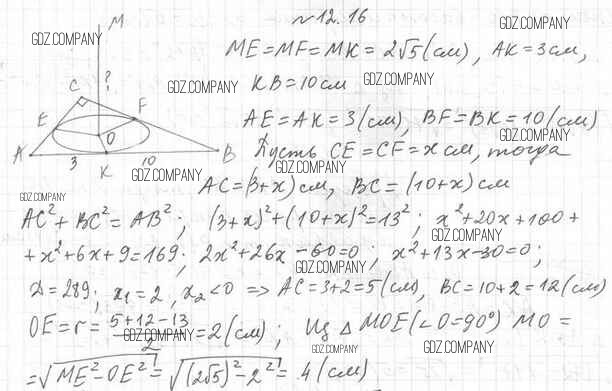 № 12.16
GDZ.COMPANY
GDZ.COMPANY
M
ME = MF = MK = 2√5 (см), AK = 3 см,
C ? F GDZ.COMPANY KB = 10 см GDZ.COMPANY
E O
AE = AK = 3 (см), BF = BK = 10 (см)
GDZ.COMPANY
A 3 K 10 B Пусть CE = CF = x см, тогда
GDZ.COMPANY GDZ.COMPANY
AC = (3+x) см, BC = (10+x) см
GDZ.COMPANY
AC² + BC² = AB²; (3+x)² + (10+x)² = 13²; x² + 20x + 100 +
GDZ.COMPANY
+ x² + 6x + 9 = 169; 2x² + 26x - 60 = 0; x² + 13x - 30 = 0;
GDZ.COMPANY
D = 289; x₁ = 2, x₂ < 0 => AC = 3+2 = 5 (см), BC = 10+2 = 12 (см)
OE = r = (5+12-13)/2 = 2 (см); Из △ MOE (∠O = 90°) MO =
GDZ.COMPANY GDZ.COMPANY
= √(ME² - OE²) = √((2√5)² - 2²) = 4 (см)